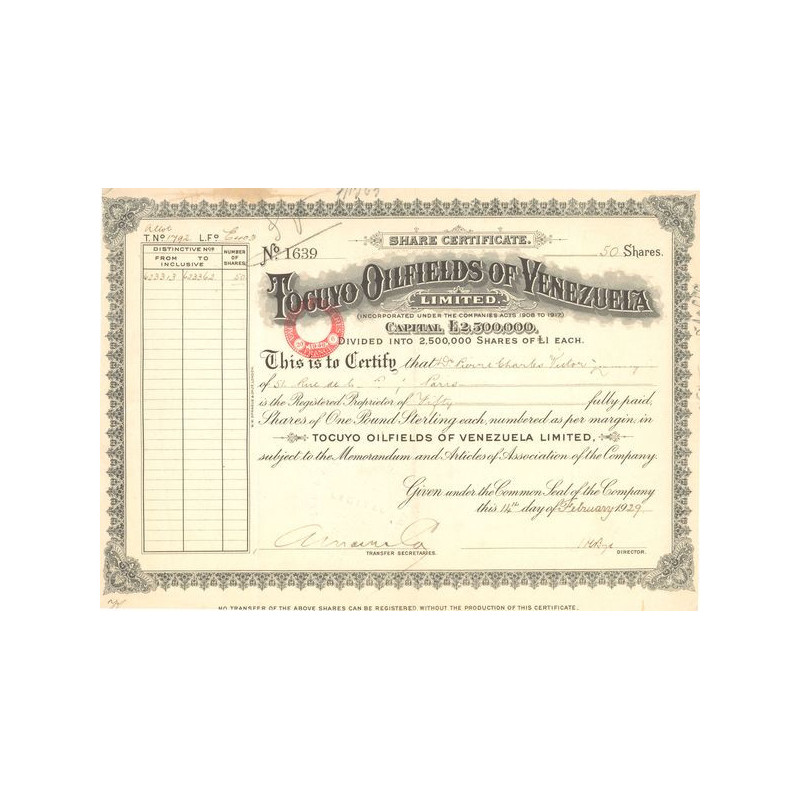 T. No 1792 L.Fo
DISTINCTIVE Nos
FROM TO
INCLUSIVE
NUMBER
OF
SHARES
623313 623362 50
SHARE CERTIFICATE.
No. 1639
50 Shares.
TOCUYO OILFIELDS OF VENEZUELA
LIMITED.
(INCORPORATED UNDER THE COMPANIES ACTS 1908 TO 1917)
CAPITAL £2,500,000,
DIVIDED INTO 2,500,000 SHARES OF £1 EACH.
This is to Certify that Dr Pierre Charles Victor
of 51 Rue de Paris
is the Registered Proprietor of Fifty fully paid
Shares of One Pound Sterling each, numbered as per margin in
TOCUYO OILFIELDS OF VENEZUELA LIMITED,
subject to the Memorandum and Articles of Association of the Company.
Given under the Common Seal of the Company
this 14th day of February 1929
TRANSFER SECRETARIES.
DIRECTOR.
NO TRANSFER OF THE ABOVE SHARES CAN BE REGISTERED WITHOUT THE PRODUCTION OF THIS CERTIFICATE.